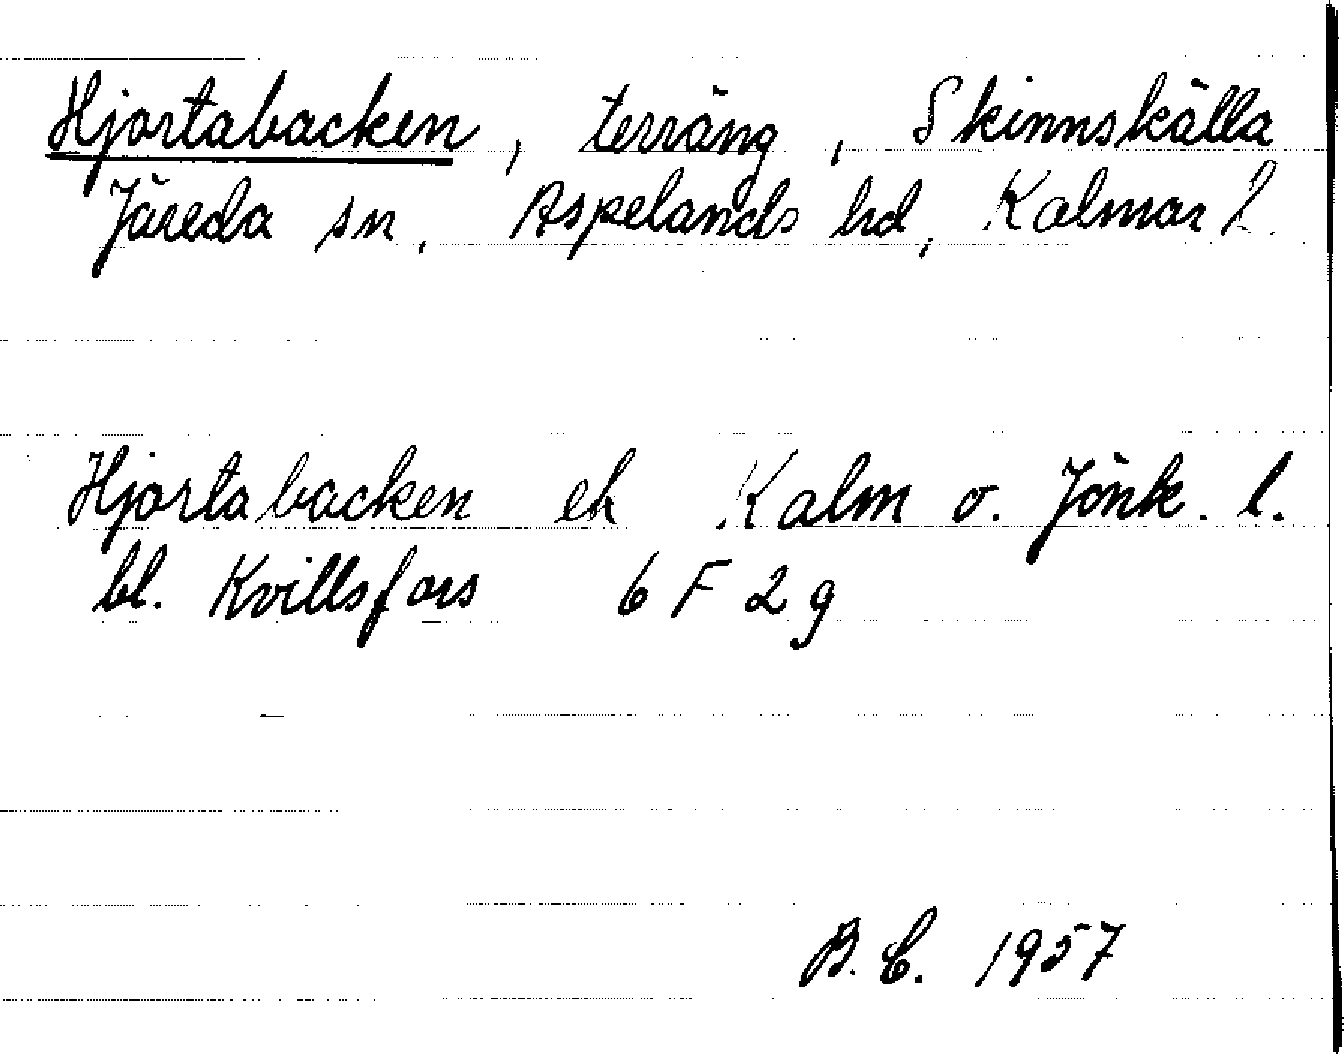 Hjortabacken, terräng, Skinnskälla
Järeda sn, Aspelands hd, Kalmar l.
Hjortabacken ek Kalm o. Jönk. l.
bl. Kvillsfors 6 F 2 g
B. C. 1957